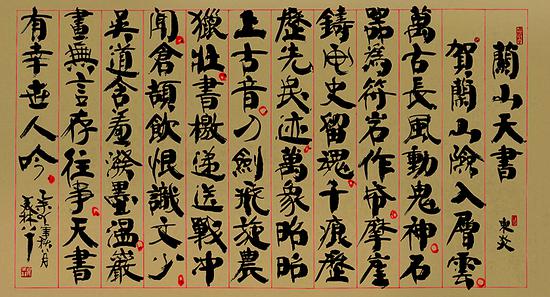 蘭山天書
賀蘭山險入層雲
萬古長風動鬼神石
器為符岩作帋摩崖
鑄史留魂千痕歷
歷先民迹萬象昭昭
上古音刀劍旋農
獵壯書檄遞送戰冲
聞倉頡飲恨識文少
吳道含羞潑墨溫巖
畫無言存往事天書
有幸世人吟